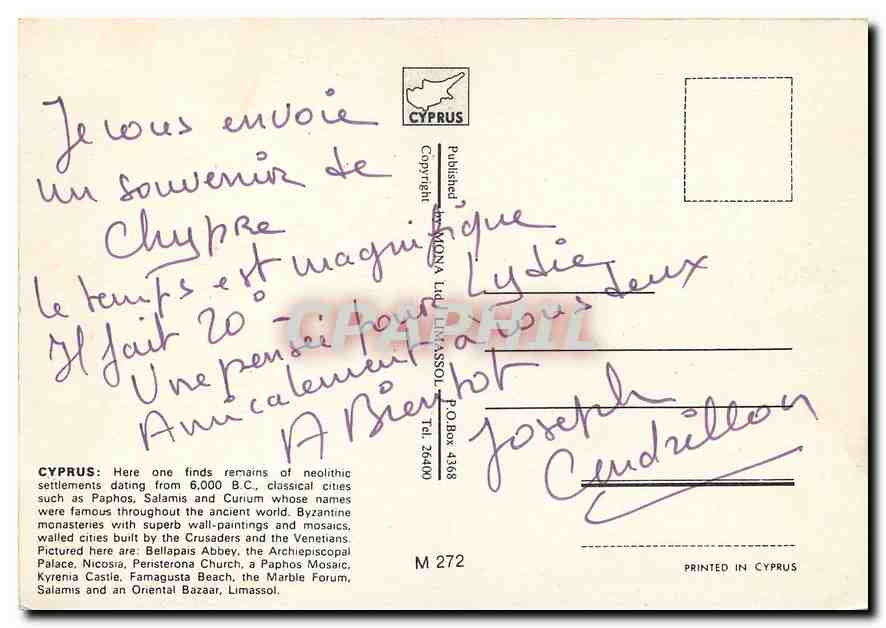 Je vous envoie
un souvenir de
Chypre
Le temps est magnifique
Il fait 20° -
Une pensée pour Lydie
Amicalement a vous deux
A Bientot
Joseph
Cendrillon
CYPRUS
Published by MONA Ltd. LIMASSOL P.O.Box 4368
Copyright Tel. 26400
CPAPHIL
CYPRUS: Here one finds remains of neolithic
settlements dating from 6,000 B.C., classical cities
such as Paphos, Salamis and Curium whose names
were famous throughout the ancient world. Byzantine
monasteries with superb wall-paintings and mosaics,
walled cities built by the Crusaders and the Venetians.
Pictured here are: Bellapais Abbey, the Archiepiscopal
Palace, Nicosia, Peristerona Church, a Paphos Mosaic,
Kyrenia Castle, Famagusta Beach, the Marble Forum,
Salamis and an Oriental Bazaar, Limassol.
M 272
PRINTED IN CYPRUS